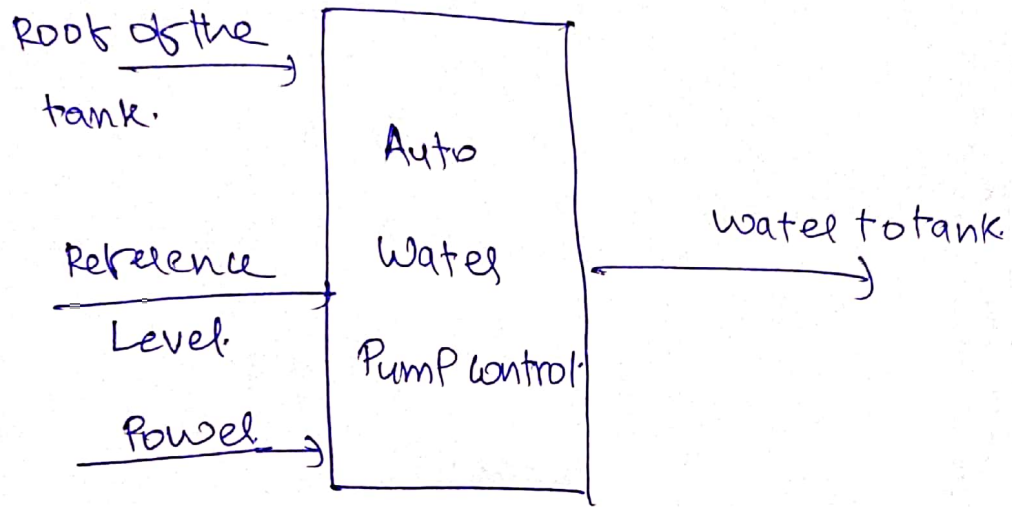 Roof of the
tank.
Reference
Level.
Power
Auto
Water
Pump control.
water to tank.